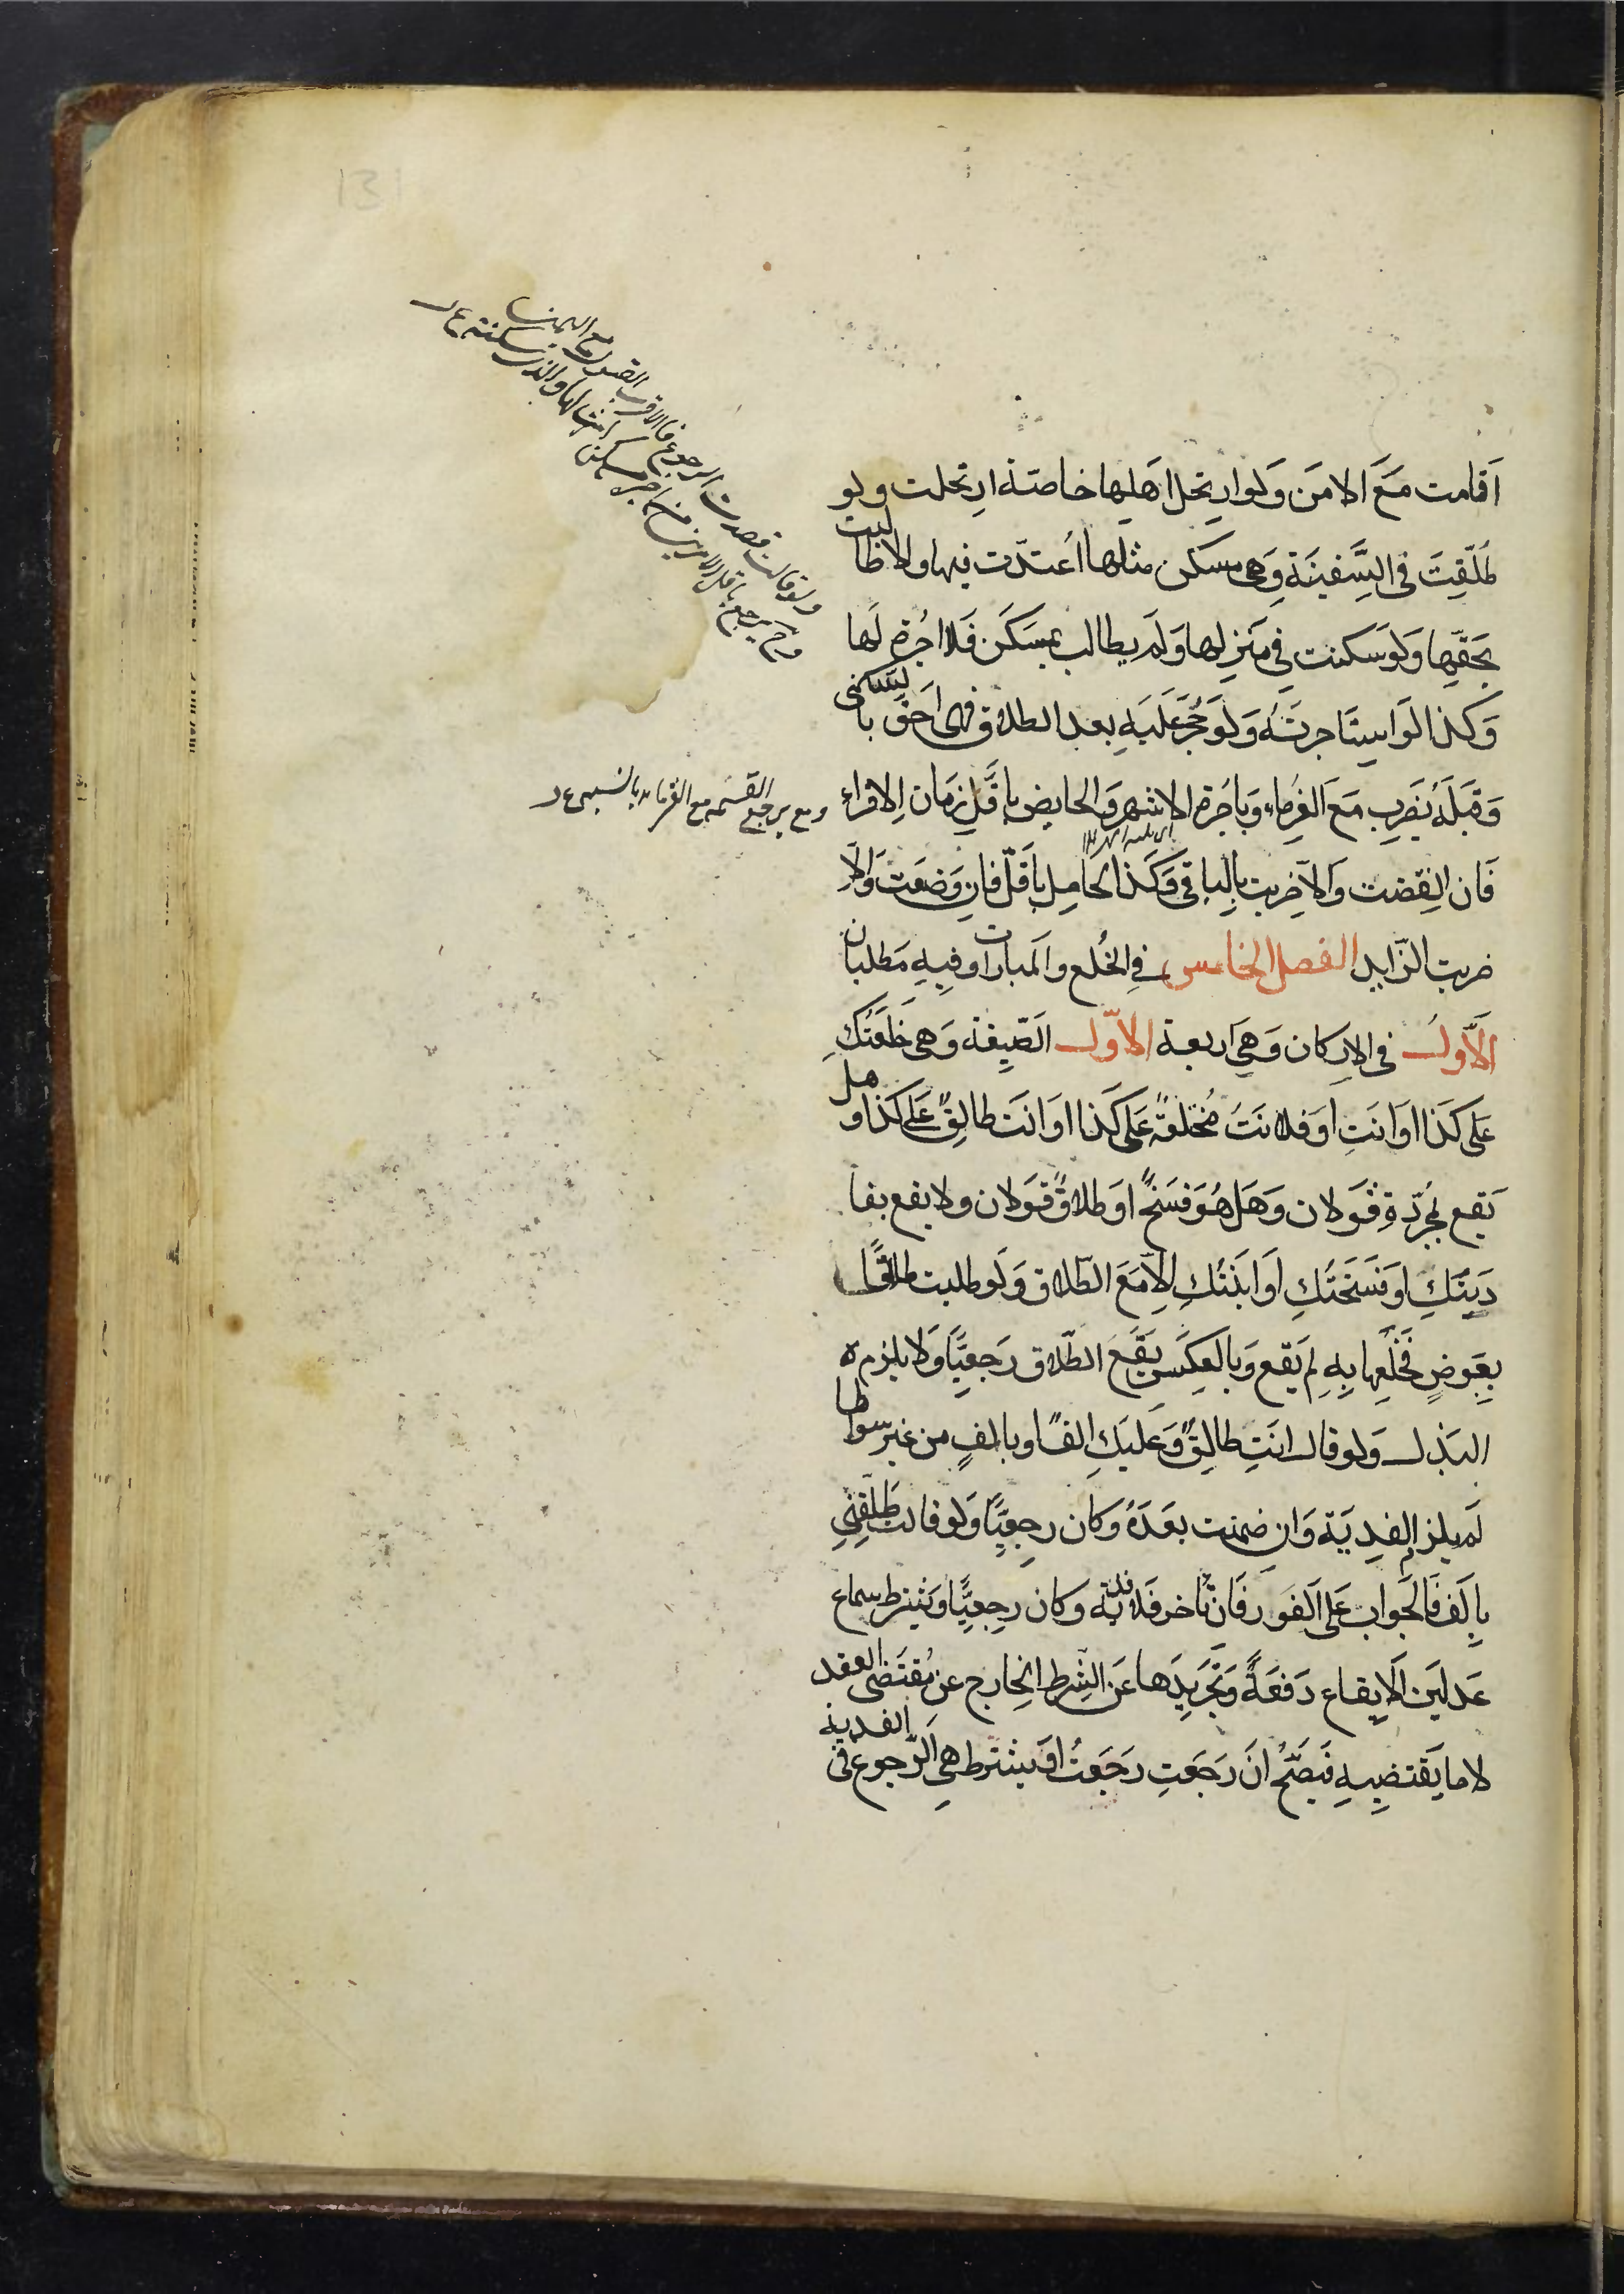 اَقامت مَعَ الامَن وَلَوارتحل اهلها خاصّة ارتحلت ولو
طُلّقت في السَّفينَة وَهي مسكن مثلها اُعتدّت فيها والا طالبت
بحَقّها وَلَوسَكنت في مَنزلها وَلَم يطالب بمسكَن فَلا اجرة لَها
وَكذا لَواستاجرتَه وَلَو حُجرَعَلَيه بعد الطلاق فهى احَق بالسّكنى
وَقبلَه يُضَرب مَعَ الغرماء وَباجُرة الاشهر وَالحايض باقَل زمَان الاقراء
فَان انقضت وَالاّ ضربت بالباقي وَكَذا الحامِل باَقَلّ فانِ وَضعَت وَالاّ
ضربت الزّايد الفصل الخامس في الخُلع والمَبارات وفيه مَطلبان
الاَوّل في الاركان وَهيَ اربعة الاوّل الصّيغة وَهى خَلَعتُكِ
عَلى كَذا اوَانتِ اوَفلانَة مُختلعَةٌ عَلى كَذا اوَانَت طالِقٌ عَلى كَذا وهل
يَقع بمُجرّدِهِ قَولان وَهَل هُوَ فَسخٌ اوَطلاقٌ قَولان ولايقع بفا
دَيتُكِ اوَفَسَختُكِ اوَ ابَنتُكِ اِلاّ مَعَ الطّلاق وَلَو طلبت طلاقًا
بعِوَضٍ فَخلَعها بِه لم يَقع وَبالعَكس يَقَع الطّلاق رَجعيّا وَلايلزمه
البَذل وَلو قال انَتِ طالِقٌ وَعَليَكِ الفٌ او بالفٍ من غير سوالها
لَم يلزم الفِديَة وَان ضمنت بعَدَهُ وَكان رجعيّا وَلو قالت طَلّقني
بالَف فَالجَواب عَلى الفَور فَان تاخر فَلا فدية وكان رجعيّا ويَشترط سماع
عَدلَين الايقاع دَفعَةً وَتَجريدَها عَن الشرط الخارج عن مُقتَضى العقد
لاما يَقتضيِه فَيصَحّ ان رَجَعتِ رَجَعتُ اوَ يشترط هي الرّجوع في الفدية
ولو قالت قصدت الرجوع فالاقرب القول مع اليمين
ومع يرجع القسمه مع الغرماء بالنسبه ع ر